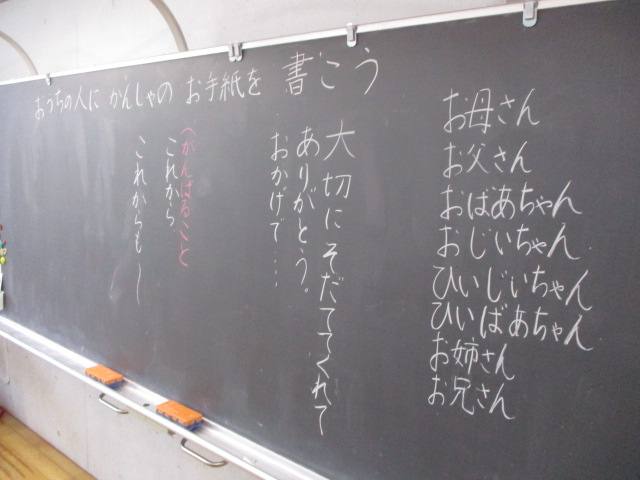 おうちの人に がんしゃの お手紙を 書こう
お母さん
お父さん
おばあちゃん
おじいちゃん
ひいじいちゃん
ひいばあちゃん
お姉さん
お兄さん
大切に そだててくれて
ありがとう。
おかげで…
(がんばること
これから
これからも〜